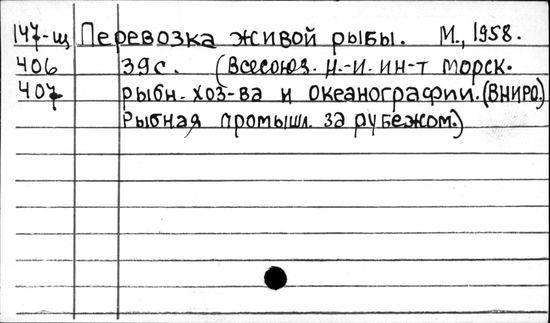 147-щ Перевозка живой рыбы. М., 1958.
406 39 с. (Всесоюз. н.-и. ин-т морск.
407 рыбн. хоз-ва и океанографии. (ВНИРО.)
Рыбная промышл. за рубежом.)